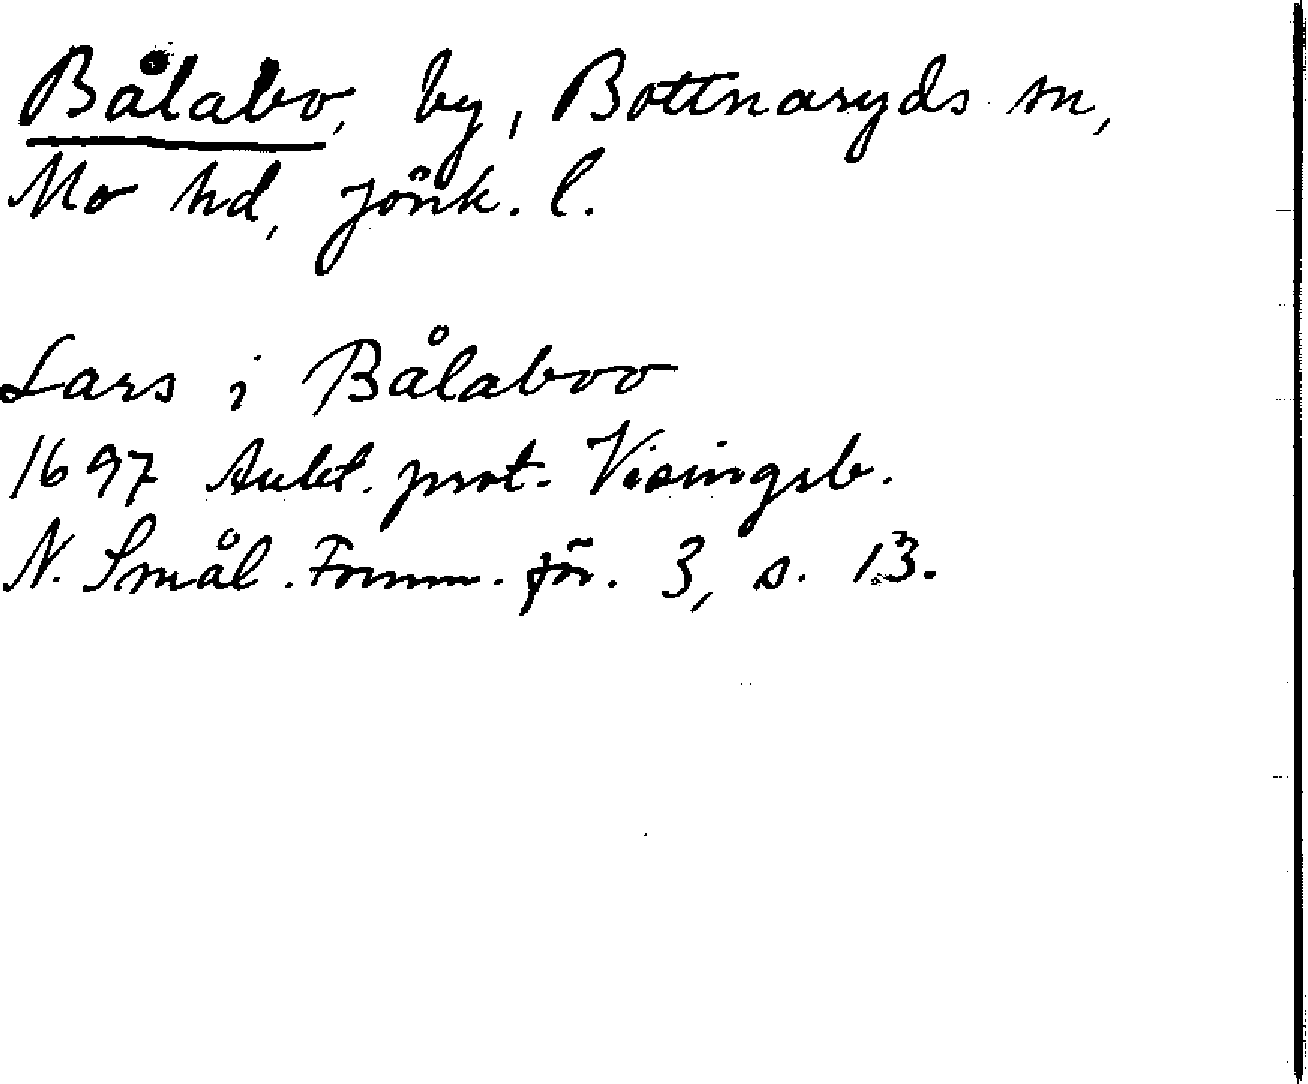 Bålabo, by, Bottnaryds sn,
Mo hd, Jönk. l.
Lars i Bålaboo
1697 Aukt. prot. Visingsb.
N. Smål. Fornm. för. 3, s. 13.